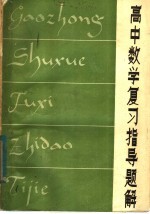 Gaozhong
Shuxue
Fuxi
Zhidao
Tijie
高中数学复习指导题解